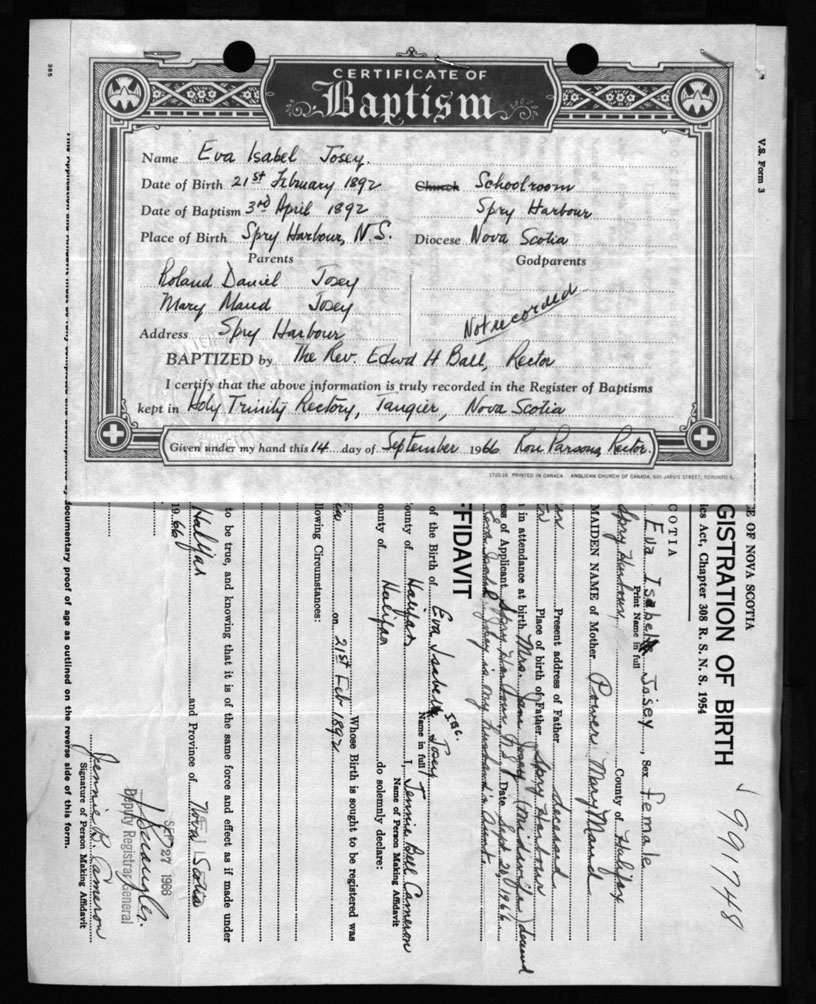 385
V.S. Form 3
CERTIFICATE OF
Baptism
Name Eva Isabel Josey.
Date of Birth 21st February 1892
Church Schoolroom
Date of Baptism 3rd April 1892
Spry Harbour
Place of Birth Spry Harbour, N.S.
Diocese Nova Scotia
Parents
Godparents
Roland Daniel Josey
Mary Maud Josey
Not recorded
Address Spry Harbour
BAPTIZED by The Rev. Edwd H Ball, Rector
I certify that the above information is truly recorded in the Register of Baptisms
kept in Holy Trinity Rectory, Tangier, Nova Scotia
Given under my hand this 14 day of September 1966 Ron Parsons Rector.
PRINTED IN CANADA ANGLICAN CHURCH OF CANADA, 600 JARVIS STREET, TORONTO
E OF NOVA SCOTIA
GISTRATION OF BIRTH
991748
es Act, Chapter 308 R. S. N. S. 1954
COTIA
Eva Isabel Josey, Sex female
Print Name in full
Spry Harbour, County of Halifax
MAIDEN NAME of Mother Powers Mary Maud
Present address of Father deceased
Place of birth of Father Spry Harbour
n in attendance at birth Mrs. Jane Josey (midwife) deceased
ess of Applicant Spry Harbour, N.S. Date Sept 26, 1966
Josey is my husband's Aunt.
FFIDAVIT
of the Birth of Eva Isabel Josey
Name in full
I, Jennie Bell Cameron
Name of Person Making Affidavit
ounty of Halifax
ounty of Halifax do solemnly declare:
Whose Birth is sought to be registered was
on 21st Feb 1892
llowing Circumstances:
to be true, and knowing that it is of the same force and effect as if made under
Halifax and Province of Nova Scotia
1966
SEP 27 1966
Deputy Registrar General
Jennie B. Cameron
Signature of Person Making Affidavit
documentary proof of age as outlined on the reverse side of this form.